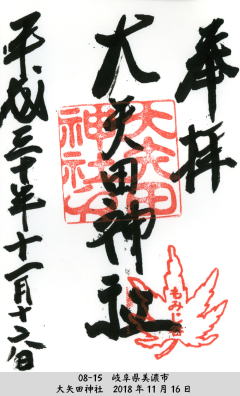 奉拝
大矢田神社
大矢田
神社
もみじ谷
平成三十年十一月十六日
08-15 岐阜県美濃市
大矢田神社 2018年11月16日